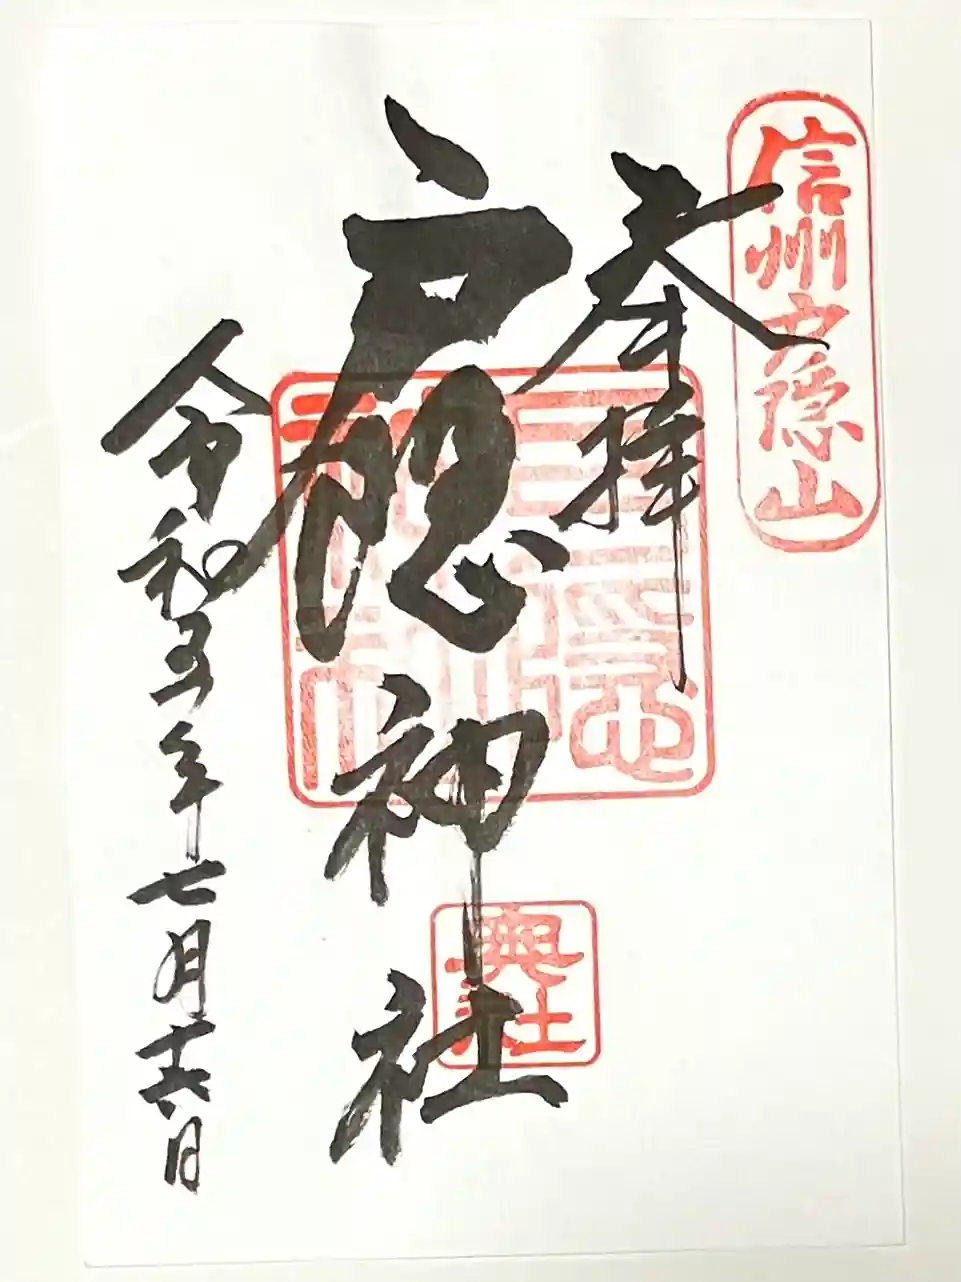 信州戸隠山
奉拝
戸隠神社
奥社
令和五年七月十六日